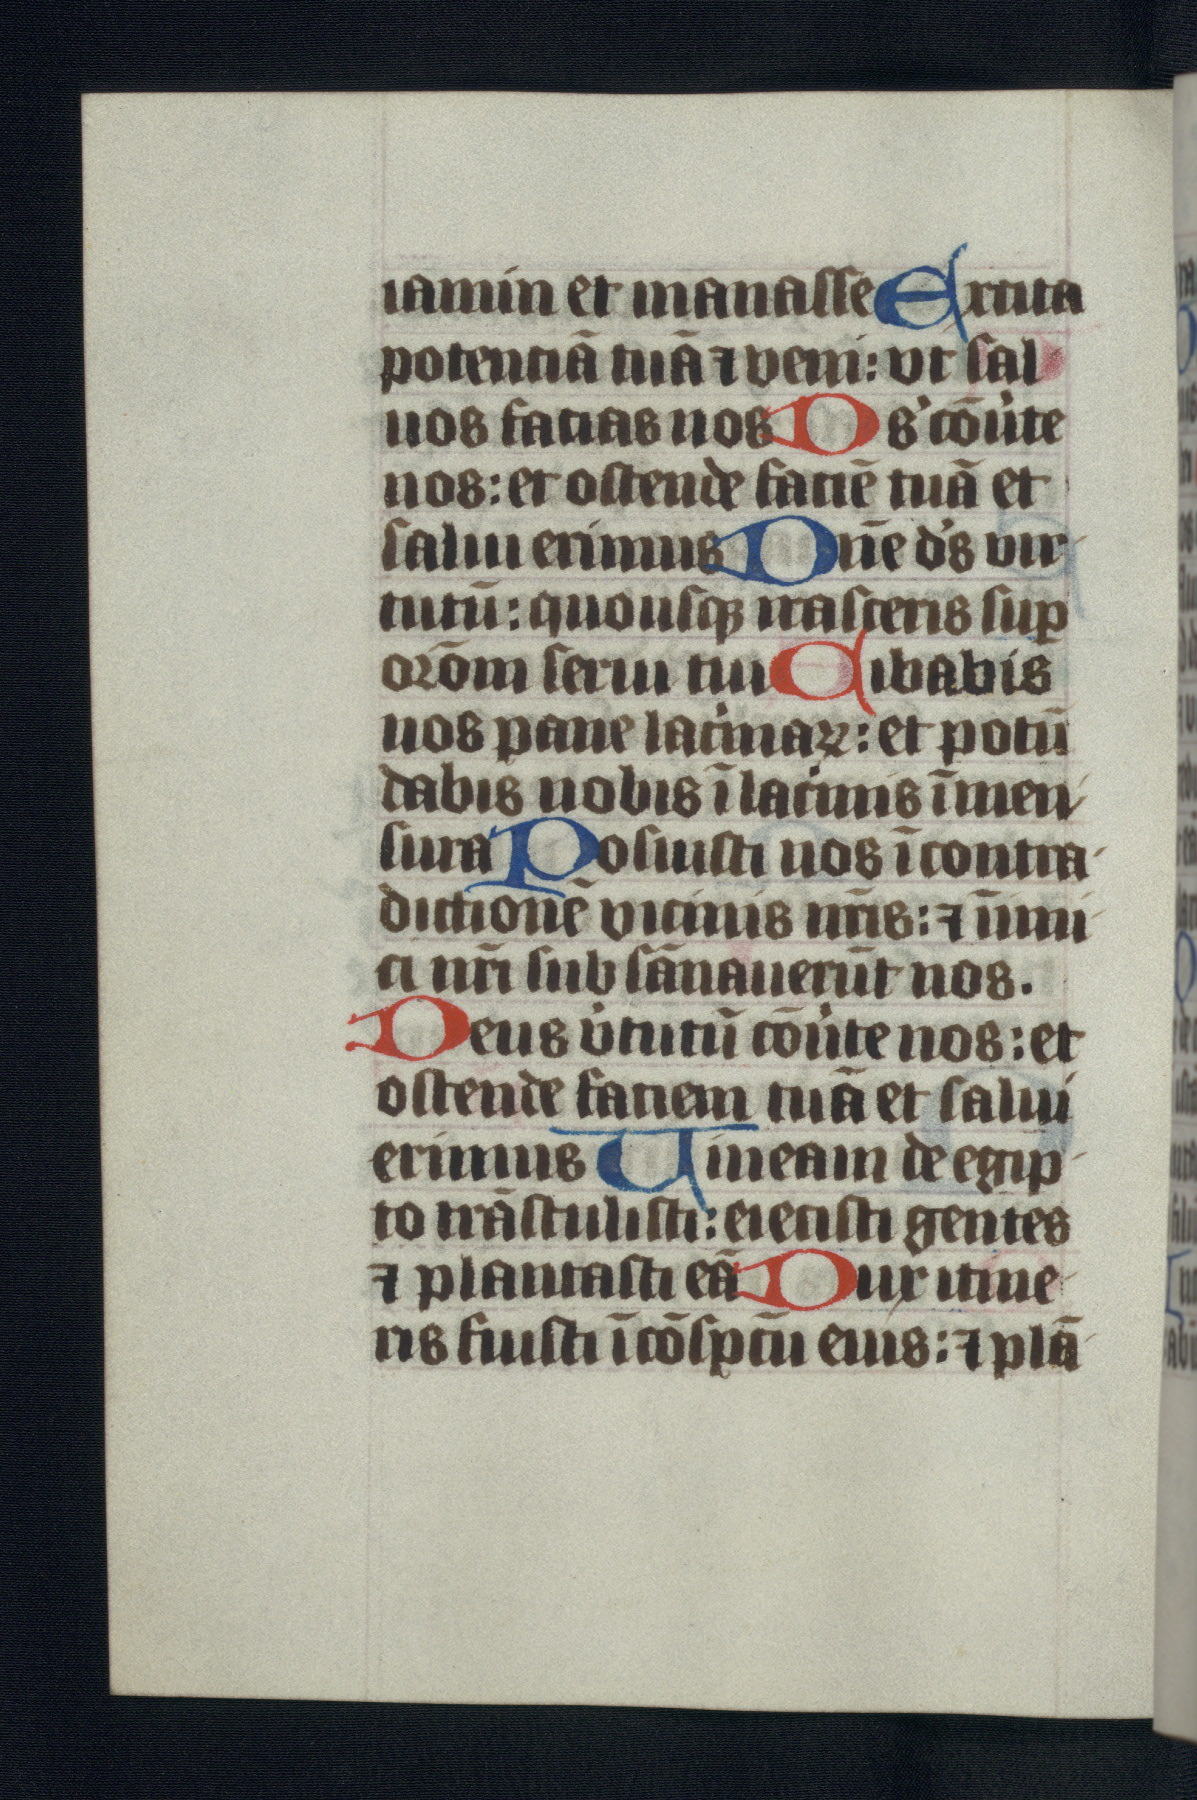 iamin et manasse Excita
potentiā tuā ⁊ veni: vt sal
uos facias nos Ds cōu'te
nos: et ostende faciē tuā et
salui erimus Dn̄e ds vir
tutū: quousqꝫ irasceris suꝑ
orōm serui tui Cibabis
nos pane lac'maꝝ: et potū
dabis nobis ī lac'mis ī men
sura Posuisti nos ī contra
dictionē vicinis nr̄is: ⁊ inīmi
ci nr̄i subsānauerūt nos.
Deus v'tutū cōu'te nos: et
ostende faciem tuā et salui
erimus Uineam de egip
to trāstulisti: eiecisti gentes
⁊ plantasti eā Dux itine
ris fuisti ī cōspc̄tu eius: ⁊ plā